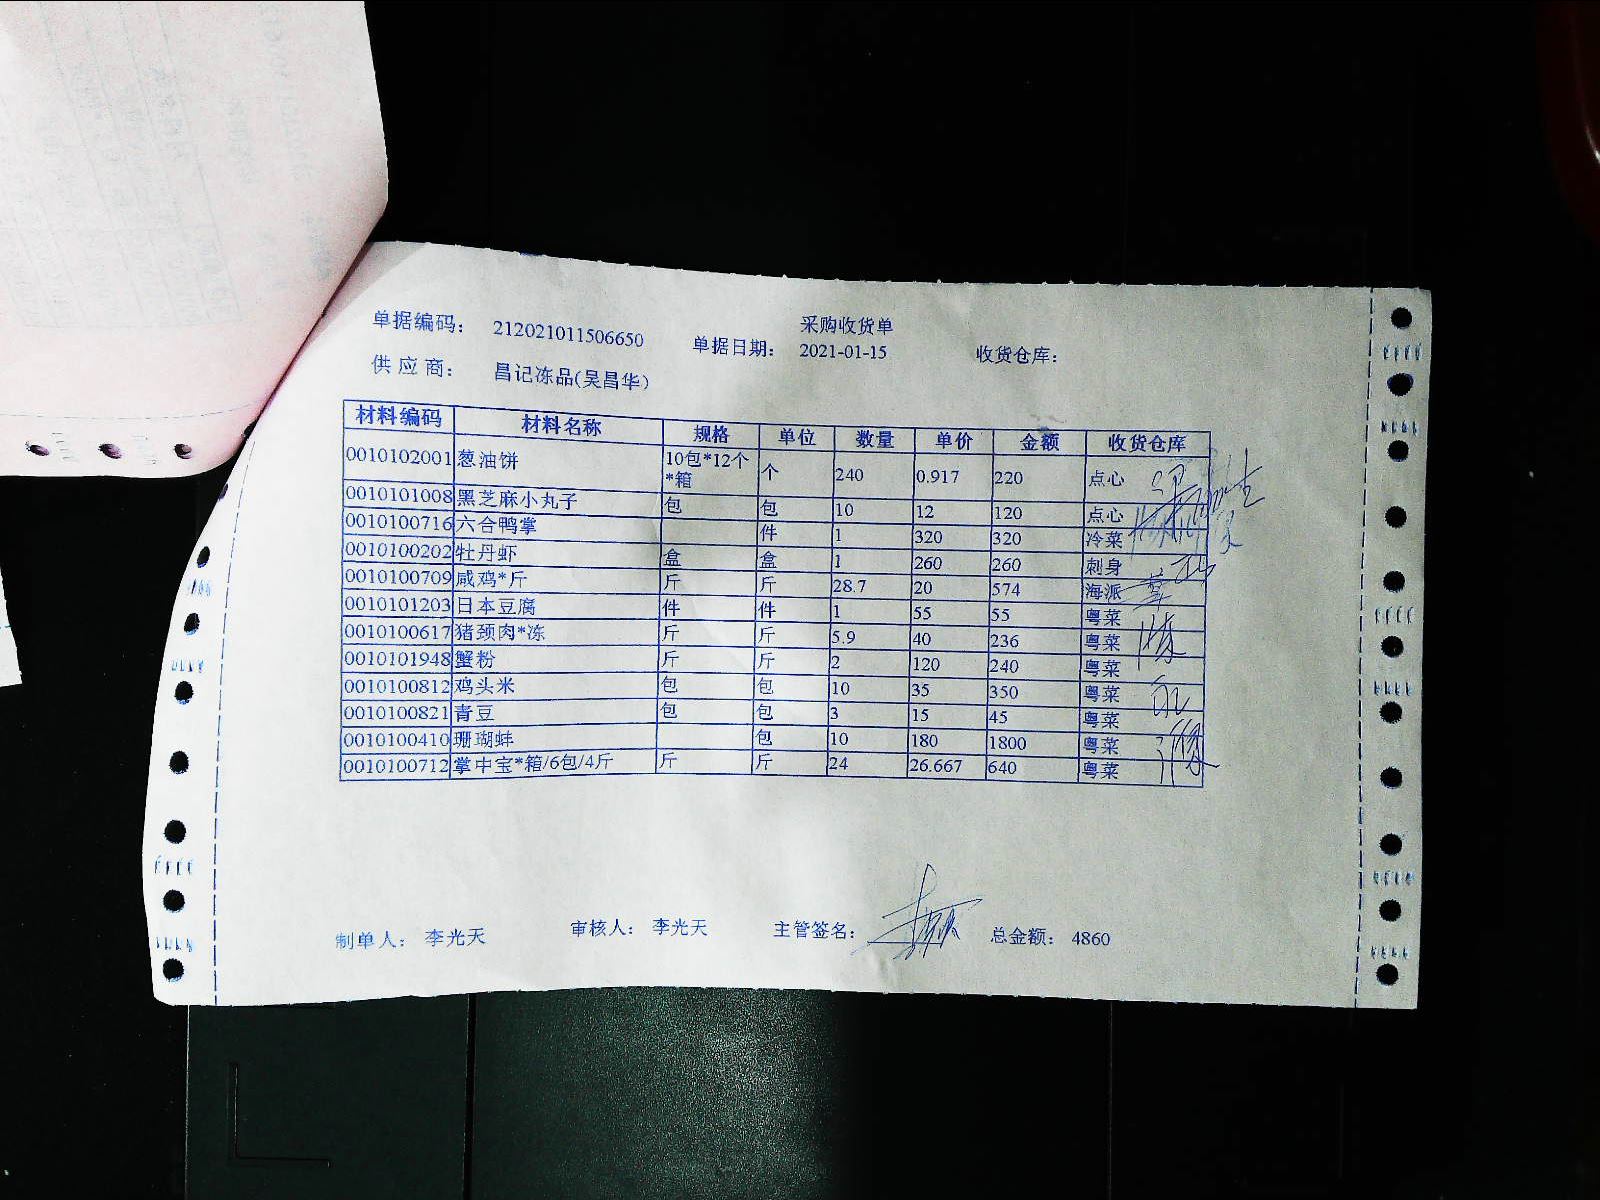 采购收货单
单据编码： 212021011506650 单据日期： 2021-01-15 收货仓库：
供 应 商： 昌记冻品(吴昌华)
材料编码 材料名称 规格 单位 数量 单价 金额 收货仓库
0010102001 葱油饼 10包*12个*箱 个 240 0.917 220 点心
0010101008 黑芝麻小丸子 包 包 10 12 120 点心
0010100716 六合鸭掌 件 1 320 320 冷菜
0010100202 牡丹虾 盒 盒 1 260 260 刺身
0010100709 咸鸡*斤 斤 斤 28.7 20 574 海派
0010101203 日本豆腐 件 件 1 55 55 粤菜
0010100617 猪颈肉*冻 斤 斤 5.9 40 236 粤菜
0010101948 蟹粉 斤 斤 2 120 240 粤菜
0010100812 鸡头米 包 包 10 35 350 粤菜
0010100821 青豆 包 包 3 15 45 粤菜
0010100410 珊瑚蚌 包 10 180 1800 粤菜
0010100712 掌中宝*箱/6包/4斤 斤 斤 24 26.667 640 粤菜
制单人： 李光天 审核人： 李光天 主管签名： 总金额： 4860